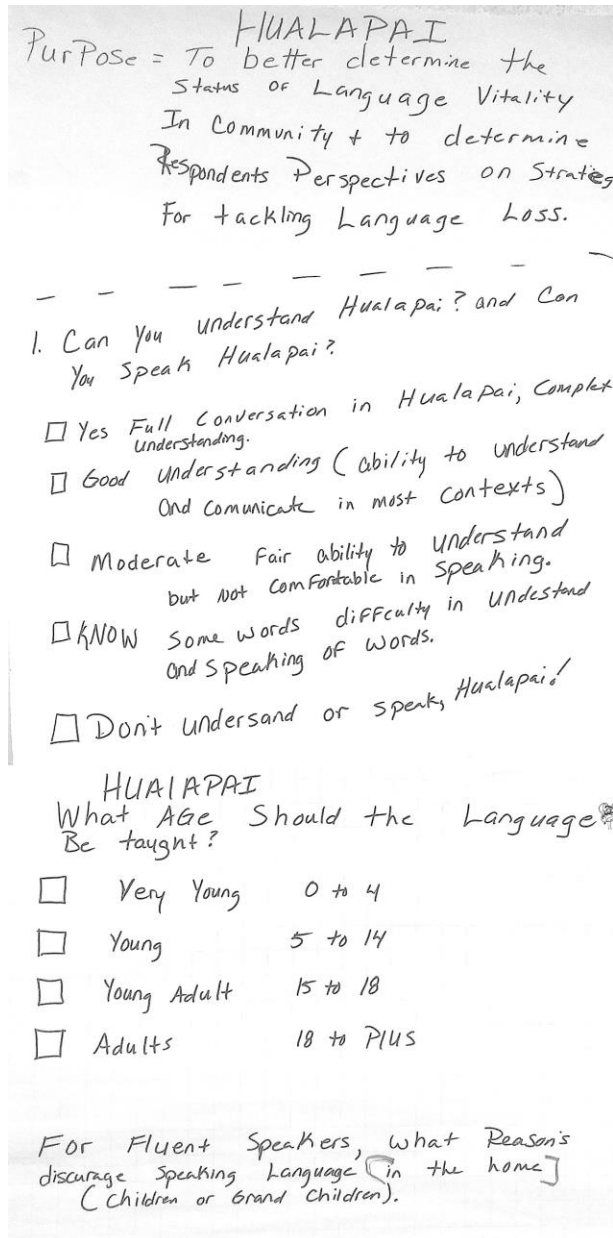 HUALAPAI
PurPose = To better determine the
Status OF Language Vitality
In Community + to determine
Respondents Perspectives on
For tackling Language Loss.
1. Can You understand Hualapai? and Can
You Speak Hualapai?
Yes Full Conversation in Hualapai, Complet
understanding.
Good understanding (ability to understand
and comunicate in most contexts)
Moderate Fair ability to understand
but not comfortable in speaking.
KNOW some words diffculty in undestand
and speaking of words.
Don't undersand or speak, Hualapai!
HUAlAPAI
What AGe Should the Language
Be taught?
Very Young 0 to 4
Young 5 to 14
Young Adult 15 to 18
Adults 18 to Plus
For Fluent Speakers, what Reason's
discurage Speaking Language [in the home]
(Children or Grand Children).